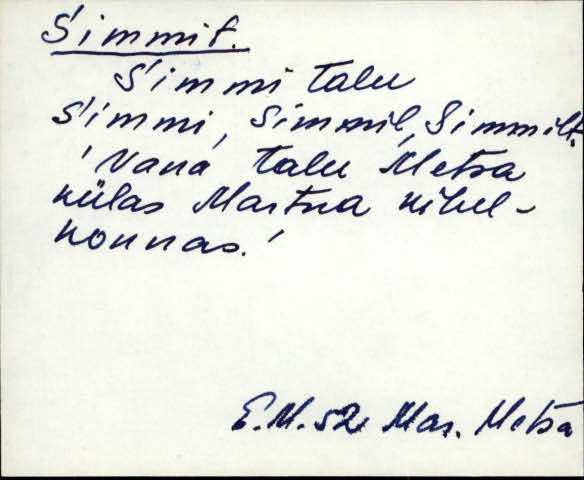 Śimmit.
Śimmi talu
Śimmi, Śimmil, Śimmilt.
'Vana talu Metsa
külas Martna kihel-
konnas.'
E.M. 52 Mar. Metsa